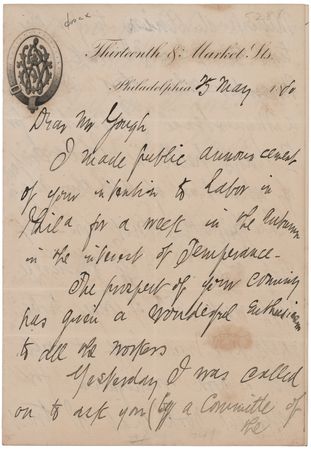 Thirteenth & Market Sts.
Philadelphia 25 May 1880
Dear Mr Gough
I made public announcement
of your intention to labor in
Phila for a week in the Autumn
in the interest of Temperance-
The prospect of your coming
has given a wonderful Enthusiasm
to all the workers
Yesterday I was called
on to ask you (by a Committee of
the